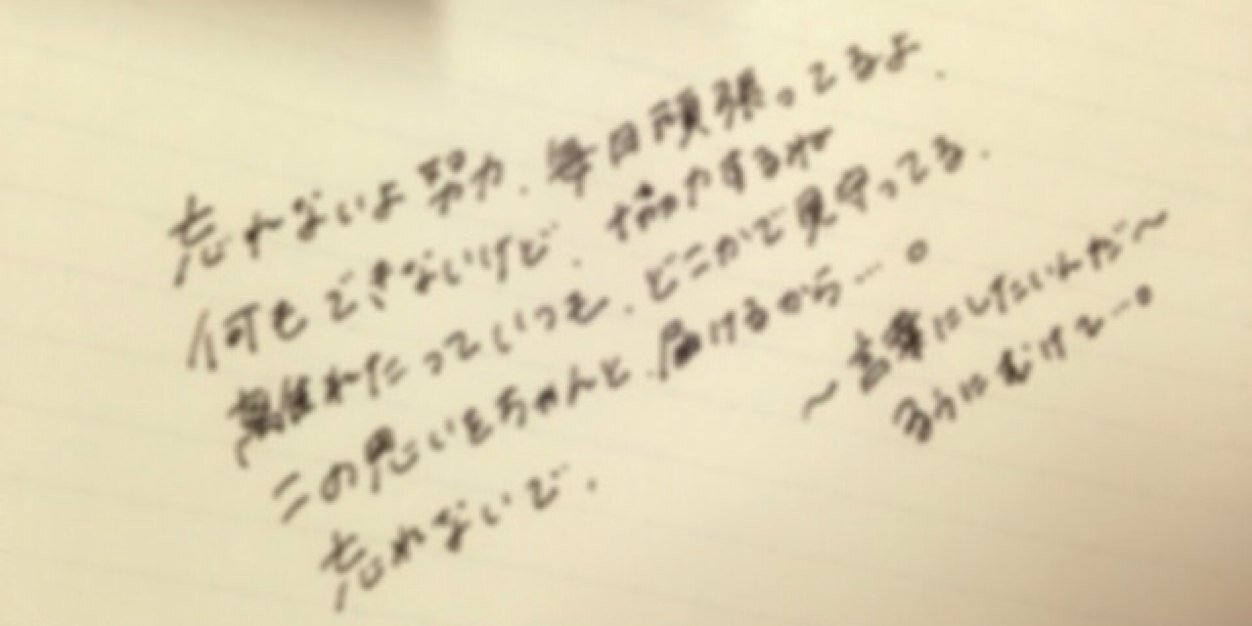 忘れないよ努力.毎日頑張ってるよ.
何もできないけど.協力するヤ
離れたっていつも.どこかで見守ってる.
この思いをちゃんと.届けるから…。
忘れないで.
～言葉にしたいんだ～
ろうにむけて…。